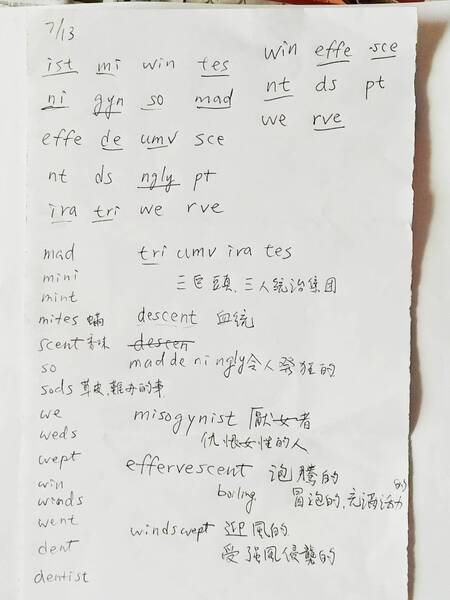 7/13
ist mi win tes
ni gyn so mad
effe de umv sce
nt ds ngly pt
ira tri we rve
win effe sce
nt ds pt
we rve
mad
mini
mint
mites 蟎
scent 香味
so
sods 草皮,難办的事
we
weds
wept
win
winds
went
dent
dentist
triumvirates
三巨頭、三人統治集团
descent 血統
descen
maddeningly 令人發狂的
misogynist 厭女者
仇恨女性的人
effervescent 泡騰的
boiling 冒泡的,充满活力的
windswept 迎風的
受强風侵襲的